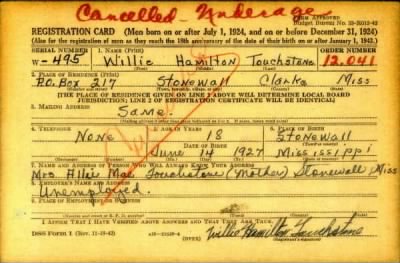 Cancelled Underage
FORM APPROVED
REGISTRATION CARD (Men born on or after July 1, 1924, and on or before December 31, 1924)
(Also for the registration of men as they reach the 18th anniversary of the date of their birth on or after January 1, 1943.)
SERIAL NUMBER 1. NAME (Print) ORDER NUMBER
W-495 Willie Hamilton Touchstone 12,041
(First) (Middle) (Last)
2. PLACE OF RESIDENCE (Print)
P.O. Box 217 Stonewall Clarke Miss
[THE PLACE OF RESIDENCE GIVEN ON LINE 2 ABOVE WILL DETERMINE LOCAL BOARD
JURISDICTION; LINE 2 OF REGISTRATION CERTIFICATE WILL BE IDENTICAL]
3. MAILING ADDRESS
Same
4. TELEPHONE 5. AGE IN YEARS 6. PLACE OF BIRTH
None 18 Stonewall
DATE OF BIRTH
June 14 1927 Mississippi
7. NAME AND ADDRESS OF PERSON WHO WILL ALWAYS KNOW YOUR ADDRESS
Mrs Allie Mae Touchstone (Mother) Stonewall Miss
8. EMPLOYER'S NAME AND ADDRESS
Unemployed.
9. PLACE OF EMPLOYMENT OR BUSINESS
I AFFIRM THAT I HAVE VERIFIED ABOVE ANSWERS AND THAT THEY ARE TRUE.
DSS Form 1 (Rev. 11-16-42) (OVER) Willie Hamilton Touchstone